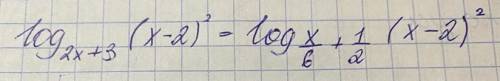 log₂ₓ₊₃ (x-2)² = log_{x/6 + 1/2} (x-2)²